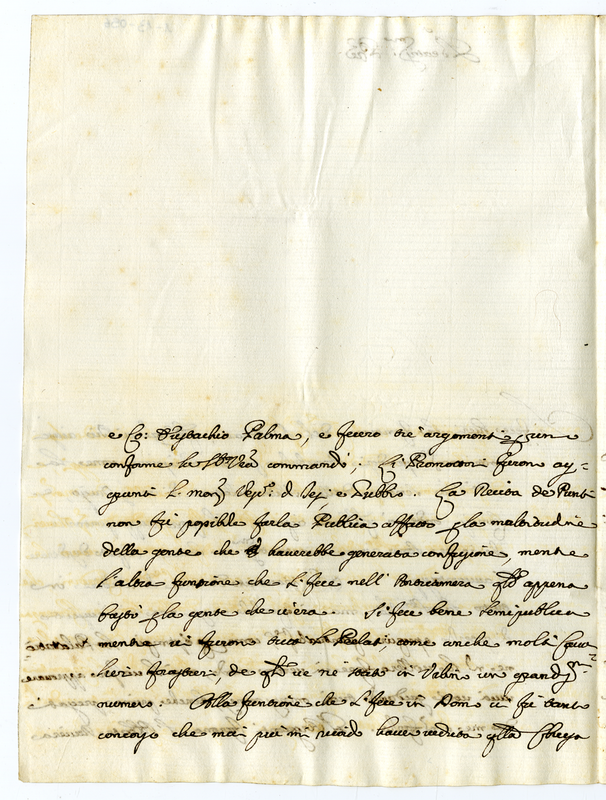 e Co: Eustachio Palma, e fecero trè argomenti per uno
conforme la Stà Vrã commandò; Li Promotori furono ag=
giunti li monsri Vesci d Jesi e Gubbio. La Recita de Punti
non fù possibile farla Publica affatto per la moltitudine
della gente che haverebbe generata confusione, mentre
l'altra funtione che si fece nell'Anticamera appena
bastò per la gente che v'era. Si fece bene semipublica
mentre vi furono tutti li Prelati, come anche molti Cava=
lieri forastieri, de quali ve ne sono in Urbino un grandissmo
numero. Alla funtione che si fece in Domo vi fù tanto
concorso che mai più mi ricordo haver veduta quella Chiesa